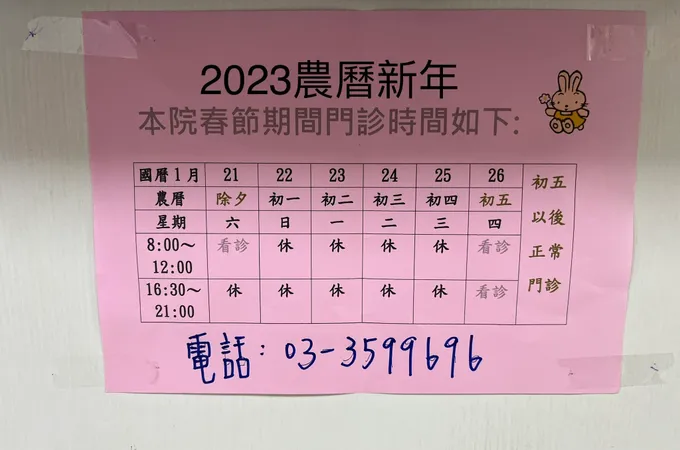 2023農曆新年
本院春節期間門診時間如下:
國曆1月 21 22 23 24 25 26 初五以後正常門診
農曆 除夕 初一 初二 初三 初四 初五
星期 六 日 一 二 三 四
8:00~12:00 看診 休 休 休 休 看診
16:30~21:00 休 休 休 休 休 看診
電話:03-3599696